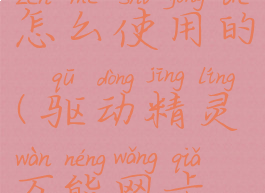 怎么使用的
qū dòng jīng líng
(驱动精灵
wàn néng wǎng qiǎ
万能网卡